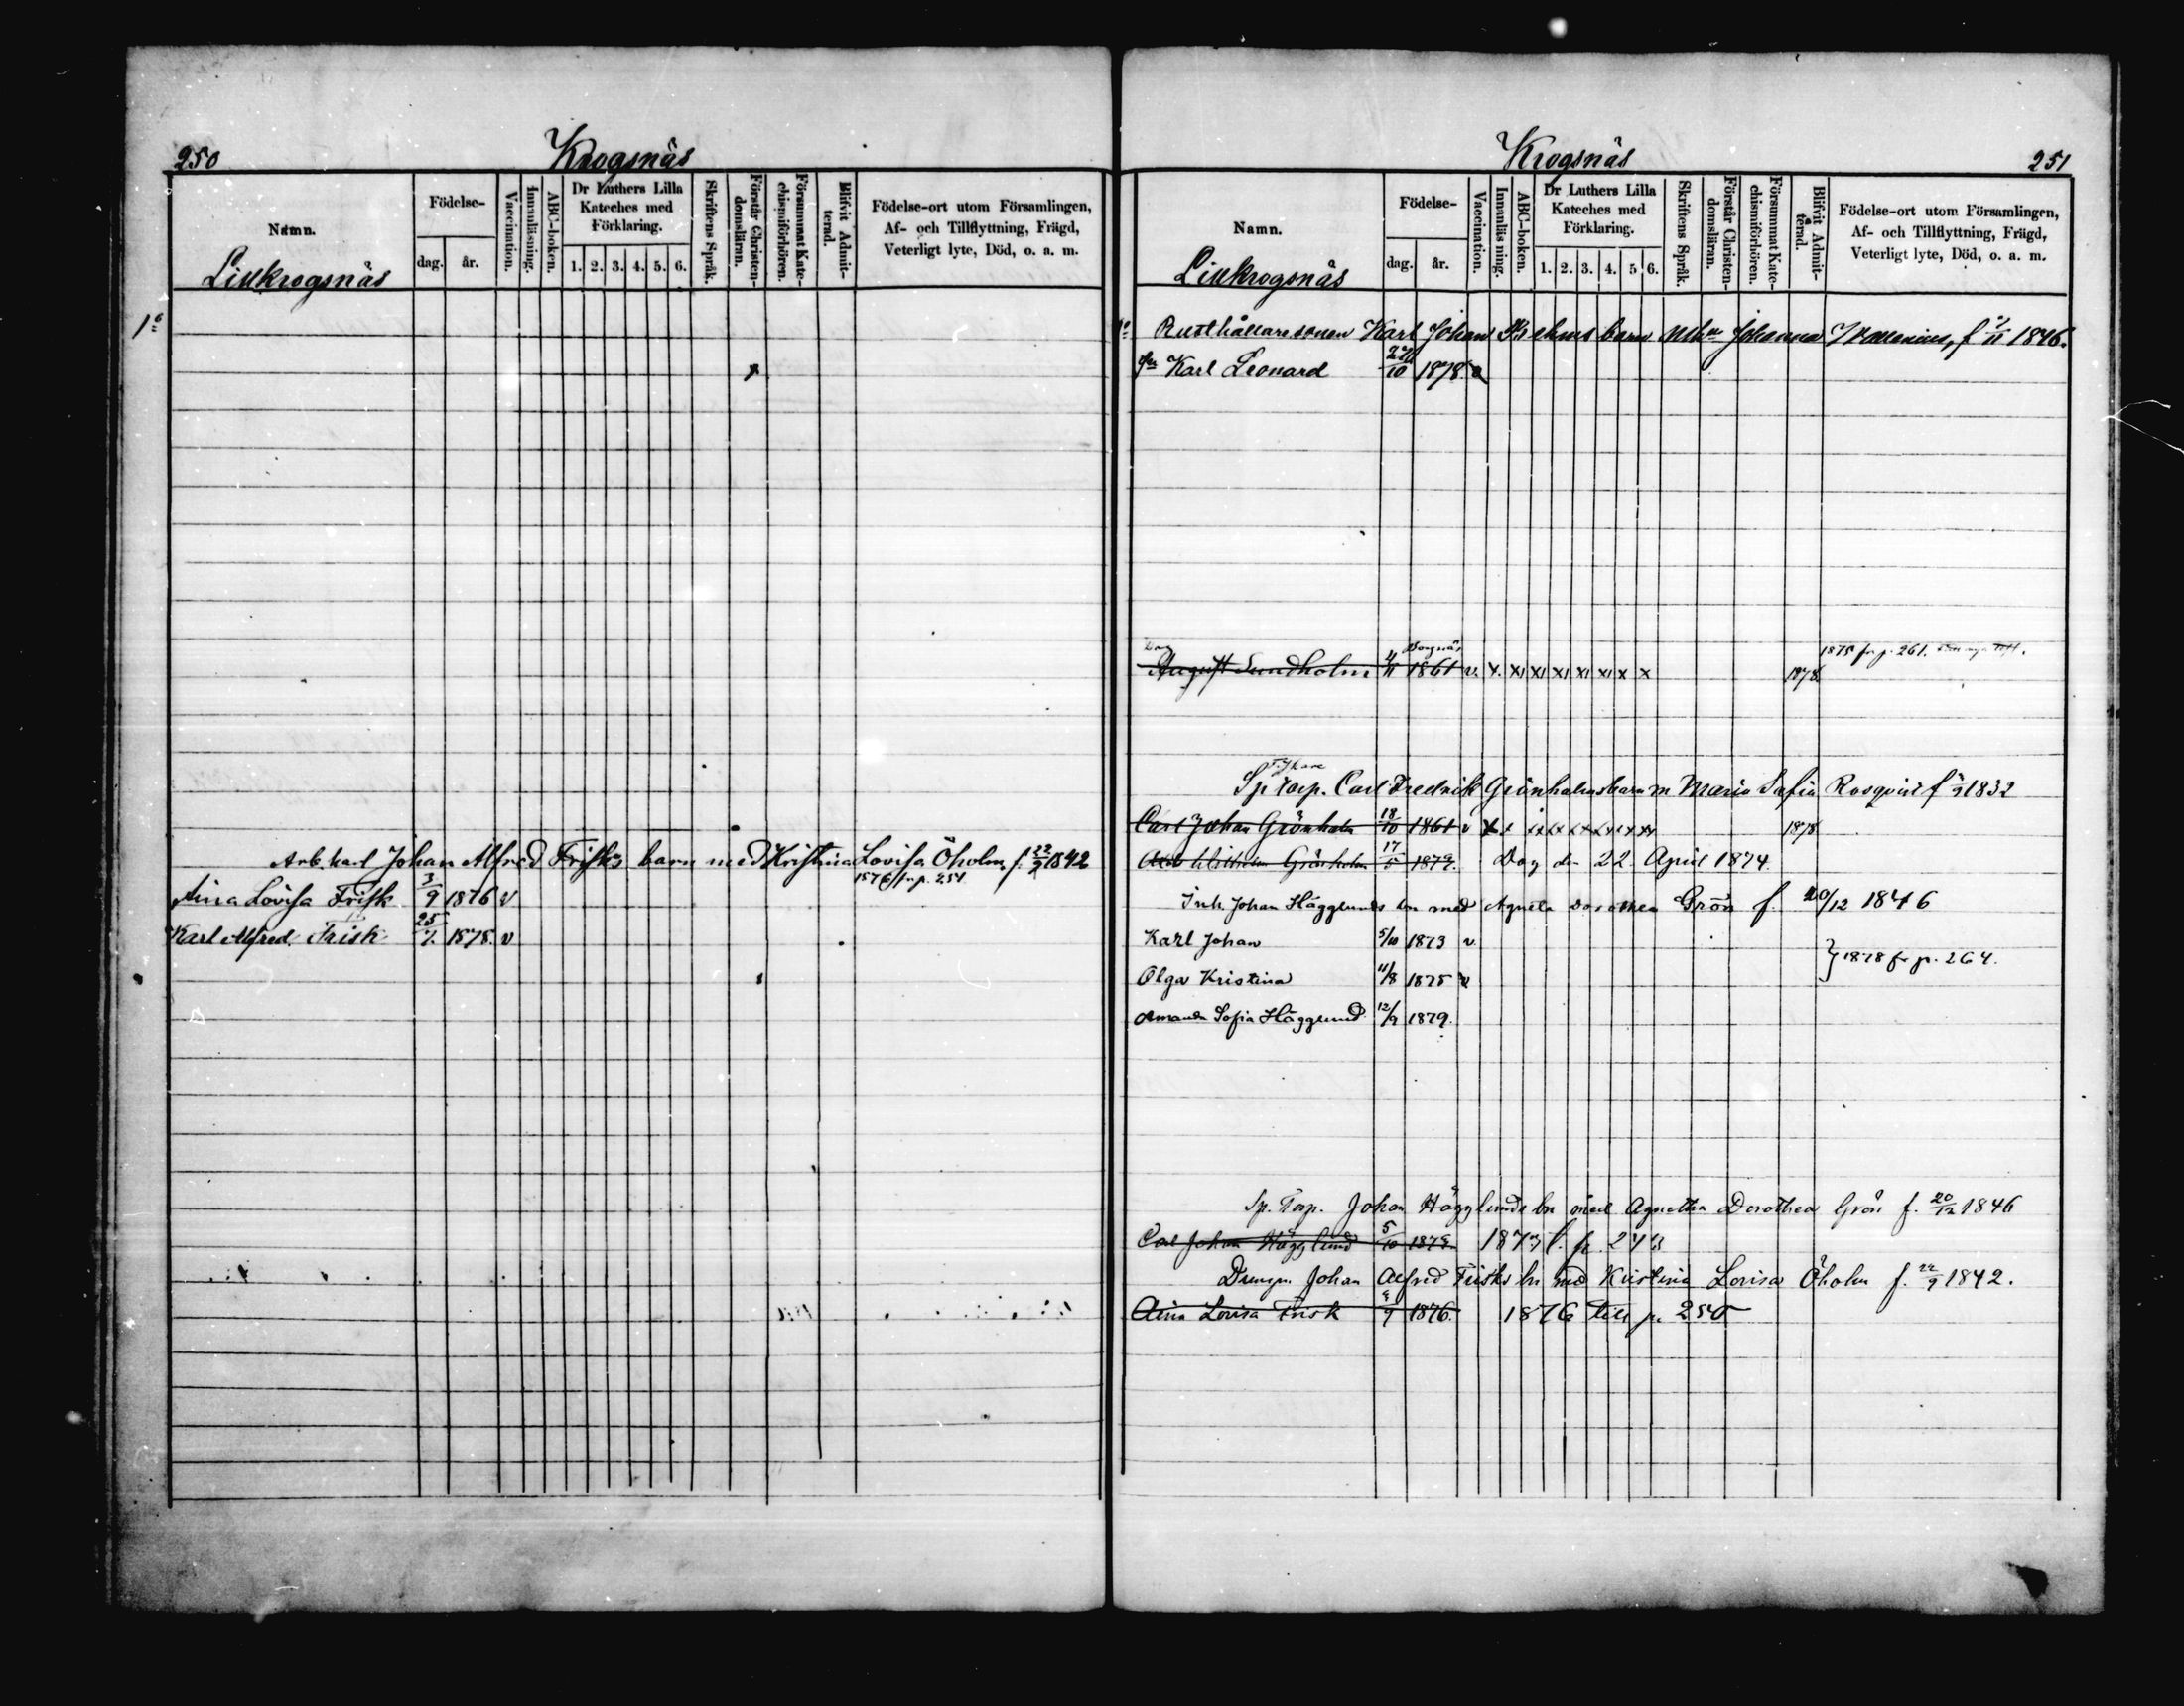 250
Krogsnäs
Namn.
Födelse-
dag.
år.
Vaccination.
Innanläsning.
ABC-boken.
Dr Luthers Lilla
Kateches med
Förklaring.
1. 2. 3. 4. 5. 6.
Skriftens Språk.
Förstår Christen-
domslärnn.
Försummat Kate-
chismiförhören.
Blifvit Admit-
terad.
Födelse-ort utom Församlingen,
Af- och Tillflyttning, Frägd,
Veterligt lyte, Död, o. a. m.
Lillkrogsnäs
Arb. karl Johan Alfred Frisks barn med Kristina Lovisa Öholm, f. 22/9 1842
1876 fr p. 251
Aina Lovisa Frisk 3/9 1876 v
Karl Alfred Frisk 25/7 1878. v
Krogsnäs
251
Namn.
Födelse-
dag.
år.
Vaccination.
Innanläsning.
ABC-boken.
Dr Luthers Lilla
Kateches med
Förklaring.
1. 2. 3. 4. 5 6.
Skriftens Språk.
Förstår Christen-
domsläran.
Försummat Kate-
chismiförhören.
Blifvit Admit-
terad.
Födelse-ort utom Församlingen,
Af- och Tillflyttning, Frägd,
Veterligt lyte, Död, o. a. m.
Lillkrogsnäs
Rusthållaresonen Karl Johan barn Johanna f 1846.
Karl Leonard 27/10 1878. v
1875 fr p. 261.
August Sundholm 11 1861 v. x. x x x x x x x 1878
Sp torp. Carl Fredrik Grönholms barn m Maria Sofia Rosqvist f 1832
Carl Johan Grönholm 18/10 1861 v x x xx xx xx xx x xx 1878
Grönholm 17/5 1872. Dog den 22 April 1874
Inh. Johan Hägglunds bn med Agneta Dorothea Grön f. 20/12 1846
Karl Johan 5/10 1873 v.
} 1878 fr p. 264.
Olga Kristina 11/8 1875 v
Amanda Sofia Hägglund 12/9 1879.
Sp. Torp. Johan Hägglunds bn med Agnetha Dorothea Grön f. 20/12 1846
Carl Johan Hägglund 5/10 1873.
Drengen Johan Alfred Frisks bn med Kristina Lovisa Öholm f. 22/9 1842.
Aina Lovisa Frisk 3/9 1876. 1876 till p. 250